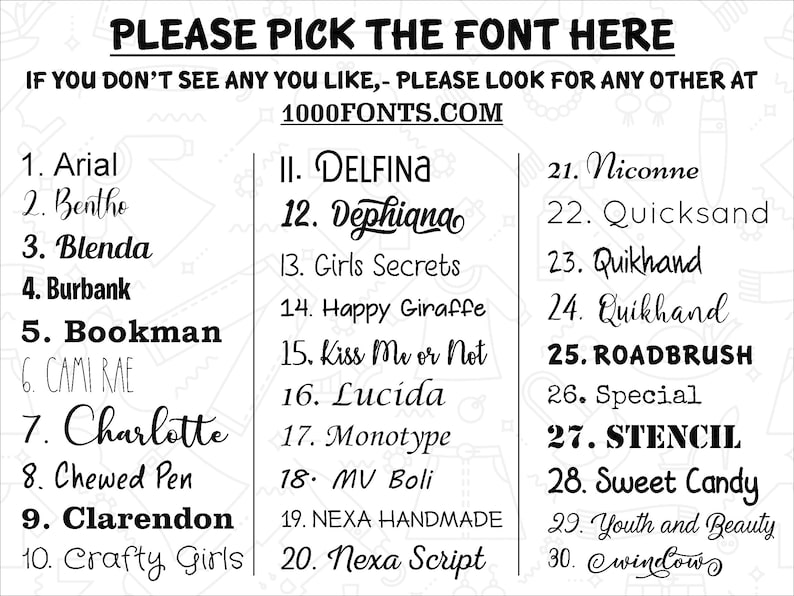 PLEASE PICK THE FONT HERE
IF YOU DON'T SEE ANY YOU LIKE,- PLEASE LOOK FOR ANY OTHER AT
1000FONTS.COM
1. Arial
2. Bentho
3. Blenda
4. Burbank
5. Bookman
6. CAMI RAE
7. Charlotte
8. Chewed Pen
9. Clarendon
10. Crafty Girls
11. DELFINA
12. Dephiana
13. Girls Secrets
14. Happy Giraffe
15. Kiss Me or Not
16. Lucida
17. Monotype
18. MV Boli
19. NEXA HANDMADE
20. Nexa Script
21. Niconne
22. Quicksand
23. Quikhand
24. Quikhand
25. ROADBRUSH
26. Special
27. STENCIL
28. Sweet Candy
29. Youth and Beauty
30. window